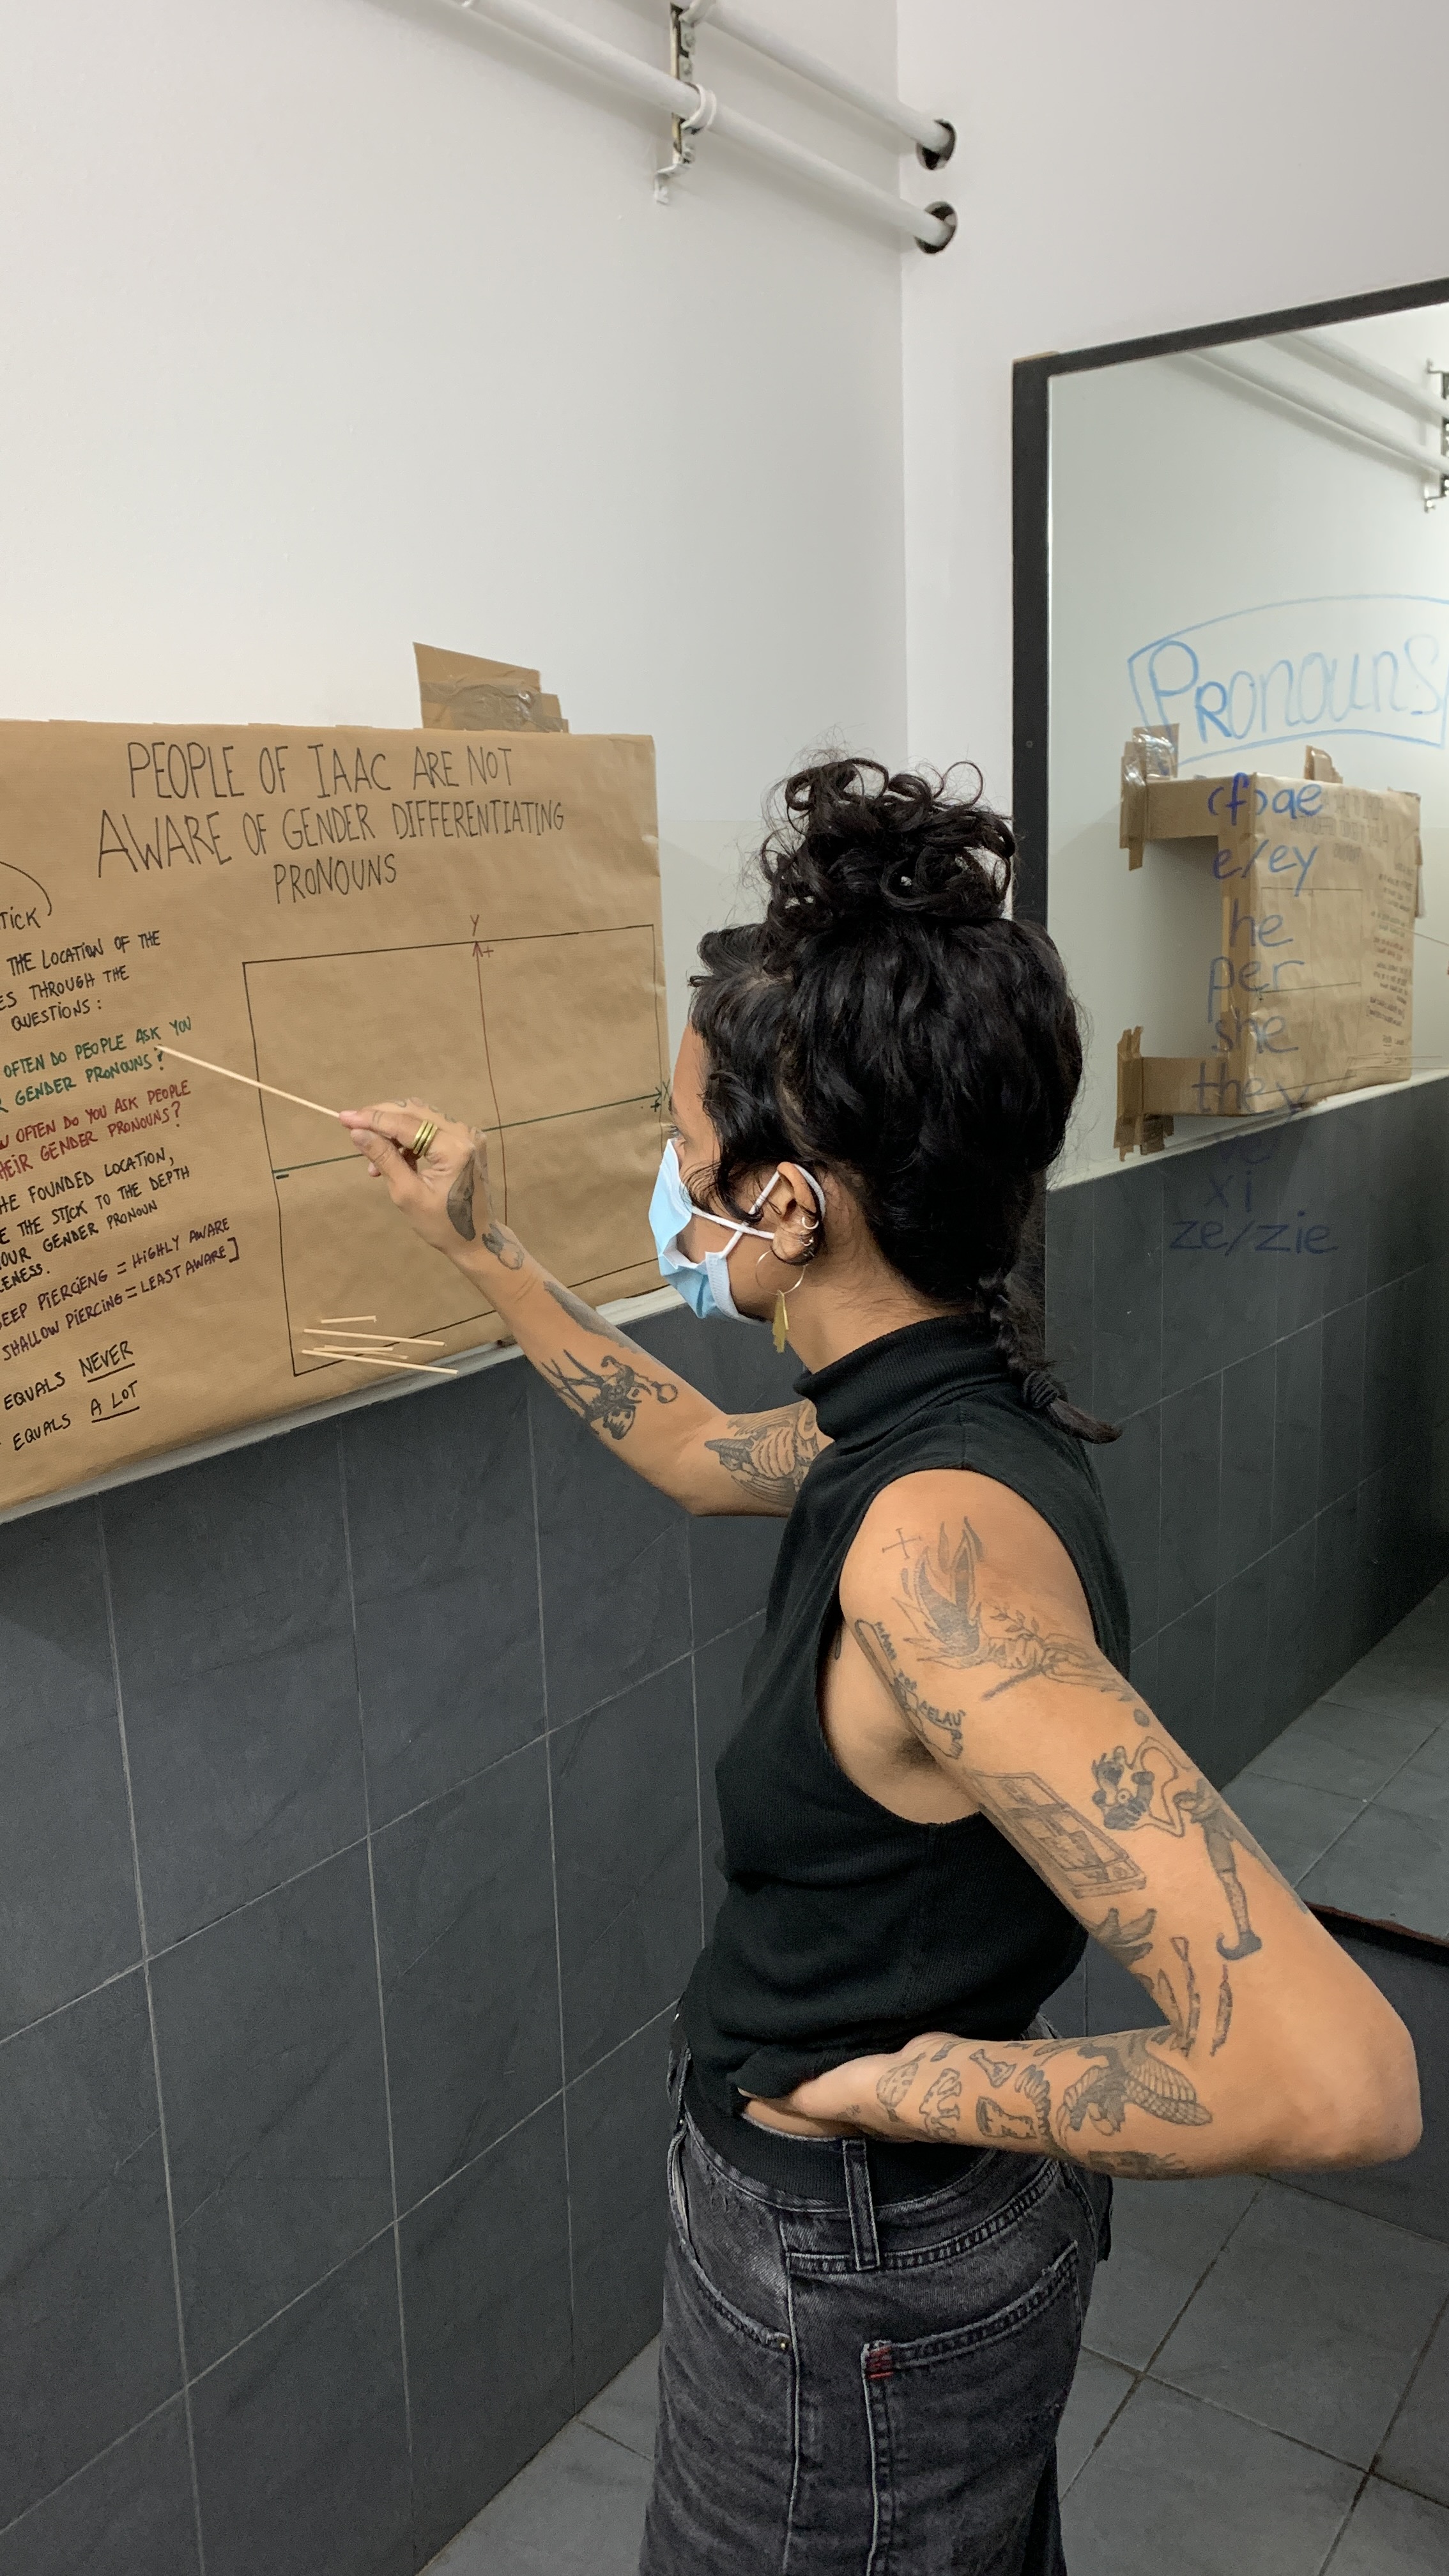 PEOPLE OF IAAC ARE NOT
AWARE OF GENDER DIFFERENTIATING
PRONOUNS
THE LOCATION OF THE
THROUGH THE
QUESTIONS:
OFTEN DO PEOPLE ASK YOU
GENDER PRONOUNS?
OFTEN DO YOU ASK PEOPLE
THEIR GENDER PRONOUNS?
THE FOUNDED LOCATION,
THE STICK TO THE DEPTH
YOUR GENDER PRONOUN
PIERCIENG = HIGHLY AWARE
SHALLOW PIERCING = LEAST AWARE]
EQUALS NEVER
EQUALS A LOT
Y
+
-
+
PRONOUNS
(f)ae
e/ey
he
per
she
they
ve
xi
ze/zie